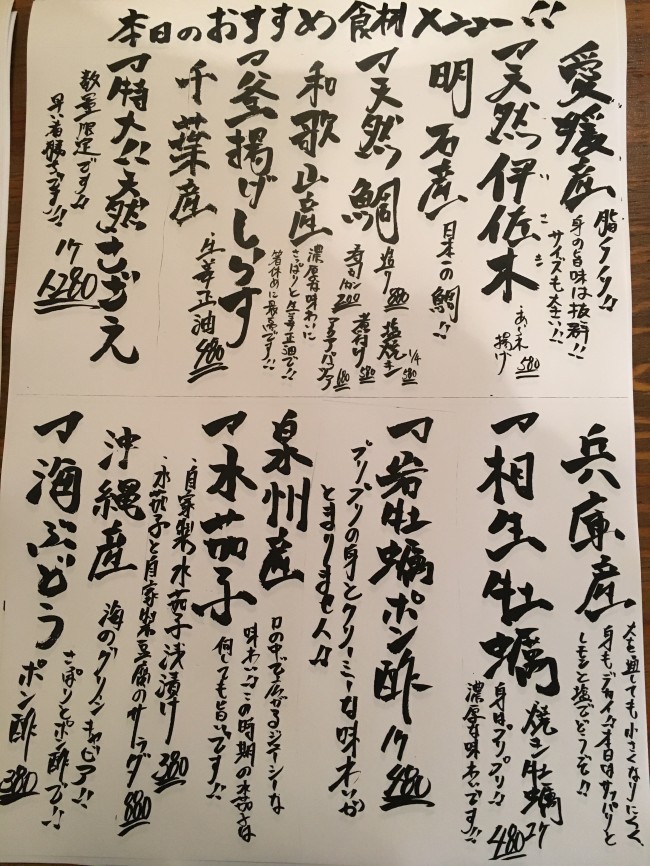 本日のおすすめ食材メニュー!!
愛媛産
脂ノリノリ!!
身の旨味は抜群!!
サイズも大きい!!
マ天然伊佐木
いさき
揚げ 580
明石産
日本一の鯛!!
マ天然鯛
造り 880
塩焼き 1/4 580
煮付け 580
和歌山産
濃厚な味わいに
さっぱりと生姜正油で!!
箸休めに最高です!!
マ釜揚げしらす
生姜正油 480
千葉産
マ特大!!天然さざえ
1ケ 1280
数量限定です!!
早い者勝ちです!!
兵庫産
火を通しても小さくなりにくく、
身もデカイ!!本日はサッパリと
レモンと塩でどうぞ!!
マ相生牡蠣
焼き牡蠣 2ケ 480
身はプリプリ!!
濃厚な味わいです!!
マ岩牡蠣ポン酢 1ケ 480
プリプリの身とクリーミーな味わいが
とまりません!!
泉州産
口の中で広がるジューシーな
味わい!!この時期の水茄子は
何しても旨いです!!
マ水茄子
・自家製水茄子浅漬け 380
・水茄子と自家製豆腐のサラダ 880
沖縄産
海のグリーンキャビア!!
さっぱりとポン酢で!!
マ海ぶどう
ポン酢 380